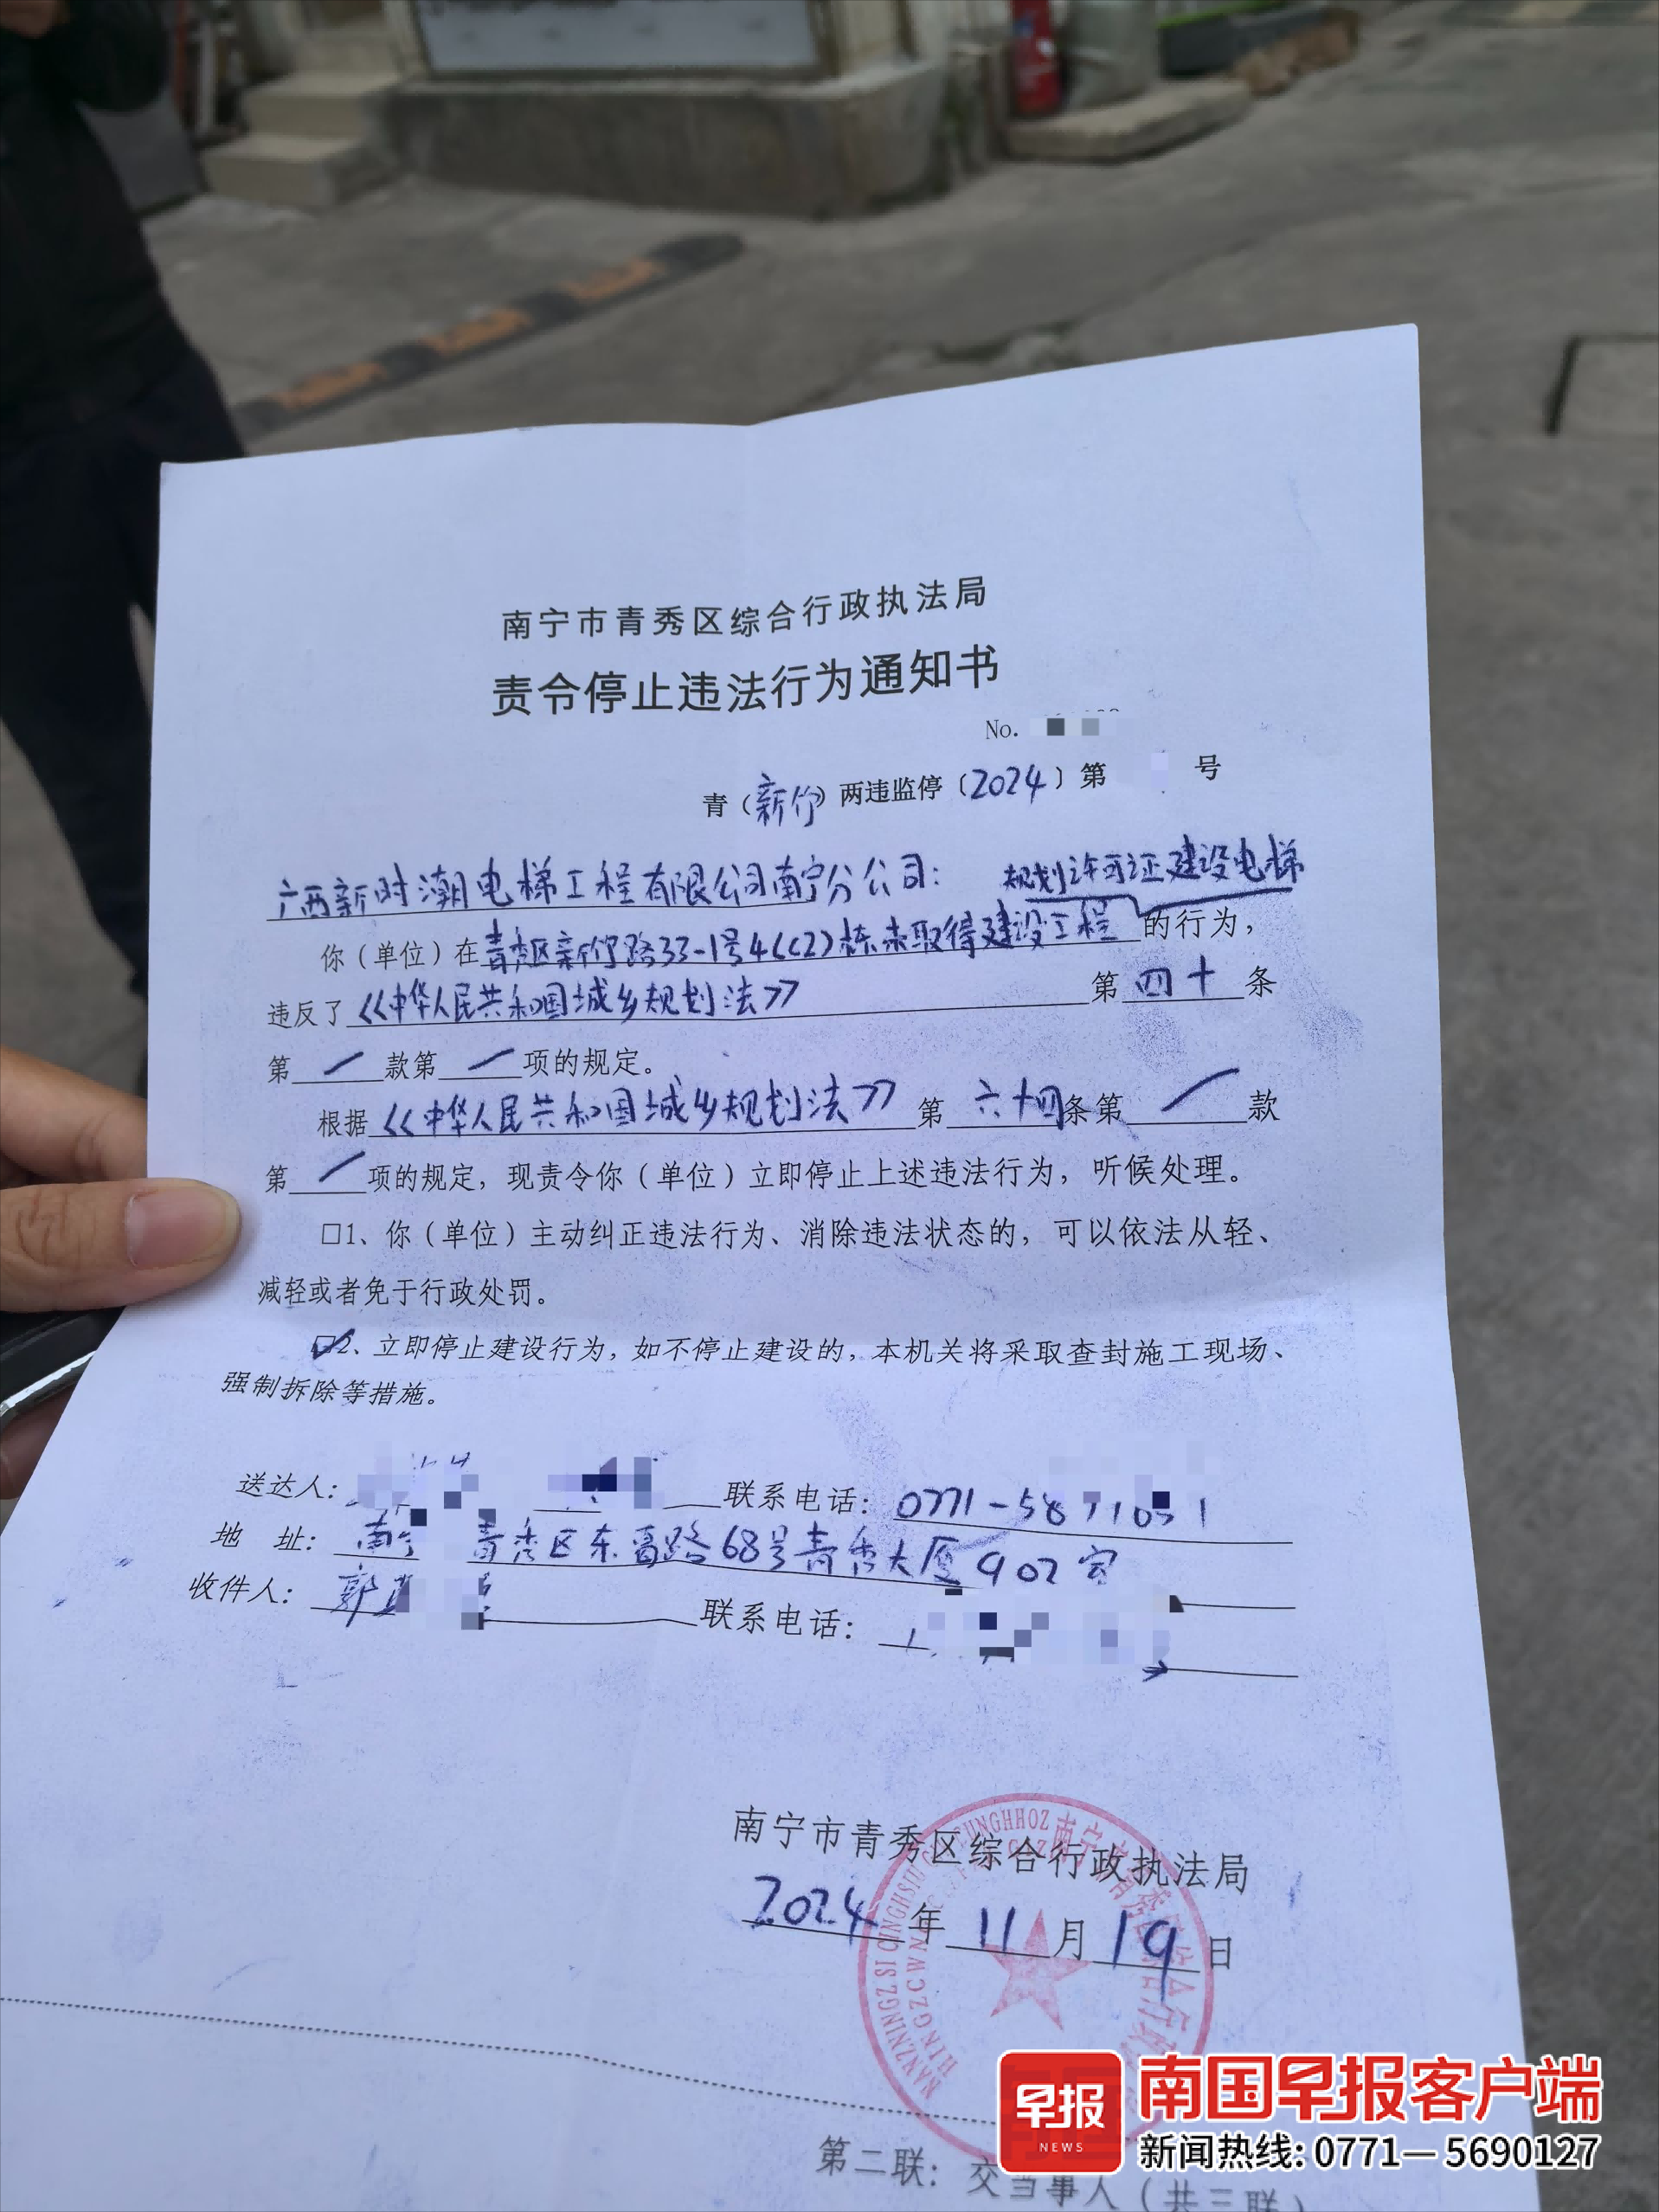 南宁市青秀区综合行政执法局
责令停止违法行为通知书
No.
青（新竹）两违监停〔2024〕第 号
广西新时潮电梯工程有限公司南宁分公司： 规划许可证建设电梯
你（单位）在青秀区新竹路33-1号4(C2)栋未取得建设工程的行为，
违反了《中华人民共和国城乡规划法》第四十条
第/款第/项的规定。
根据《中华人民共和国城乡规划法》第六十四条第/款
第/项的规定，现责令你（单位）立即停止上述违法行为，听候处理。
□1、你（单位）主动纠正违法行为、消除违法状态的，可以依法从轻、
减轻或者免于行政处罚。
☑2、立即停止建设行为，如不停止建设的，本机关将采取查封施工现场、
强制拆除等措施。
送达人： 联系电话：0771-58
地 址：南宁 青秀区东葛路68号青秀大厦902室
收件人：郭 联系电话：
南宁市青秀区综合行政执法局
2024年11月19日
NANZNINGZ SI CINGHSIU GIH CUNGHHOZ
第二联：交当事人（共三联）
早报
NEWS
南国早报客户端
新闻热线：0771—5690127